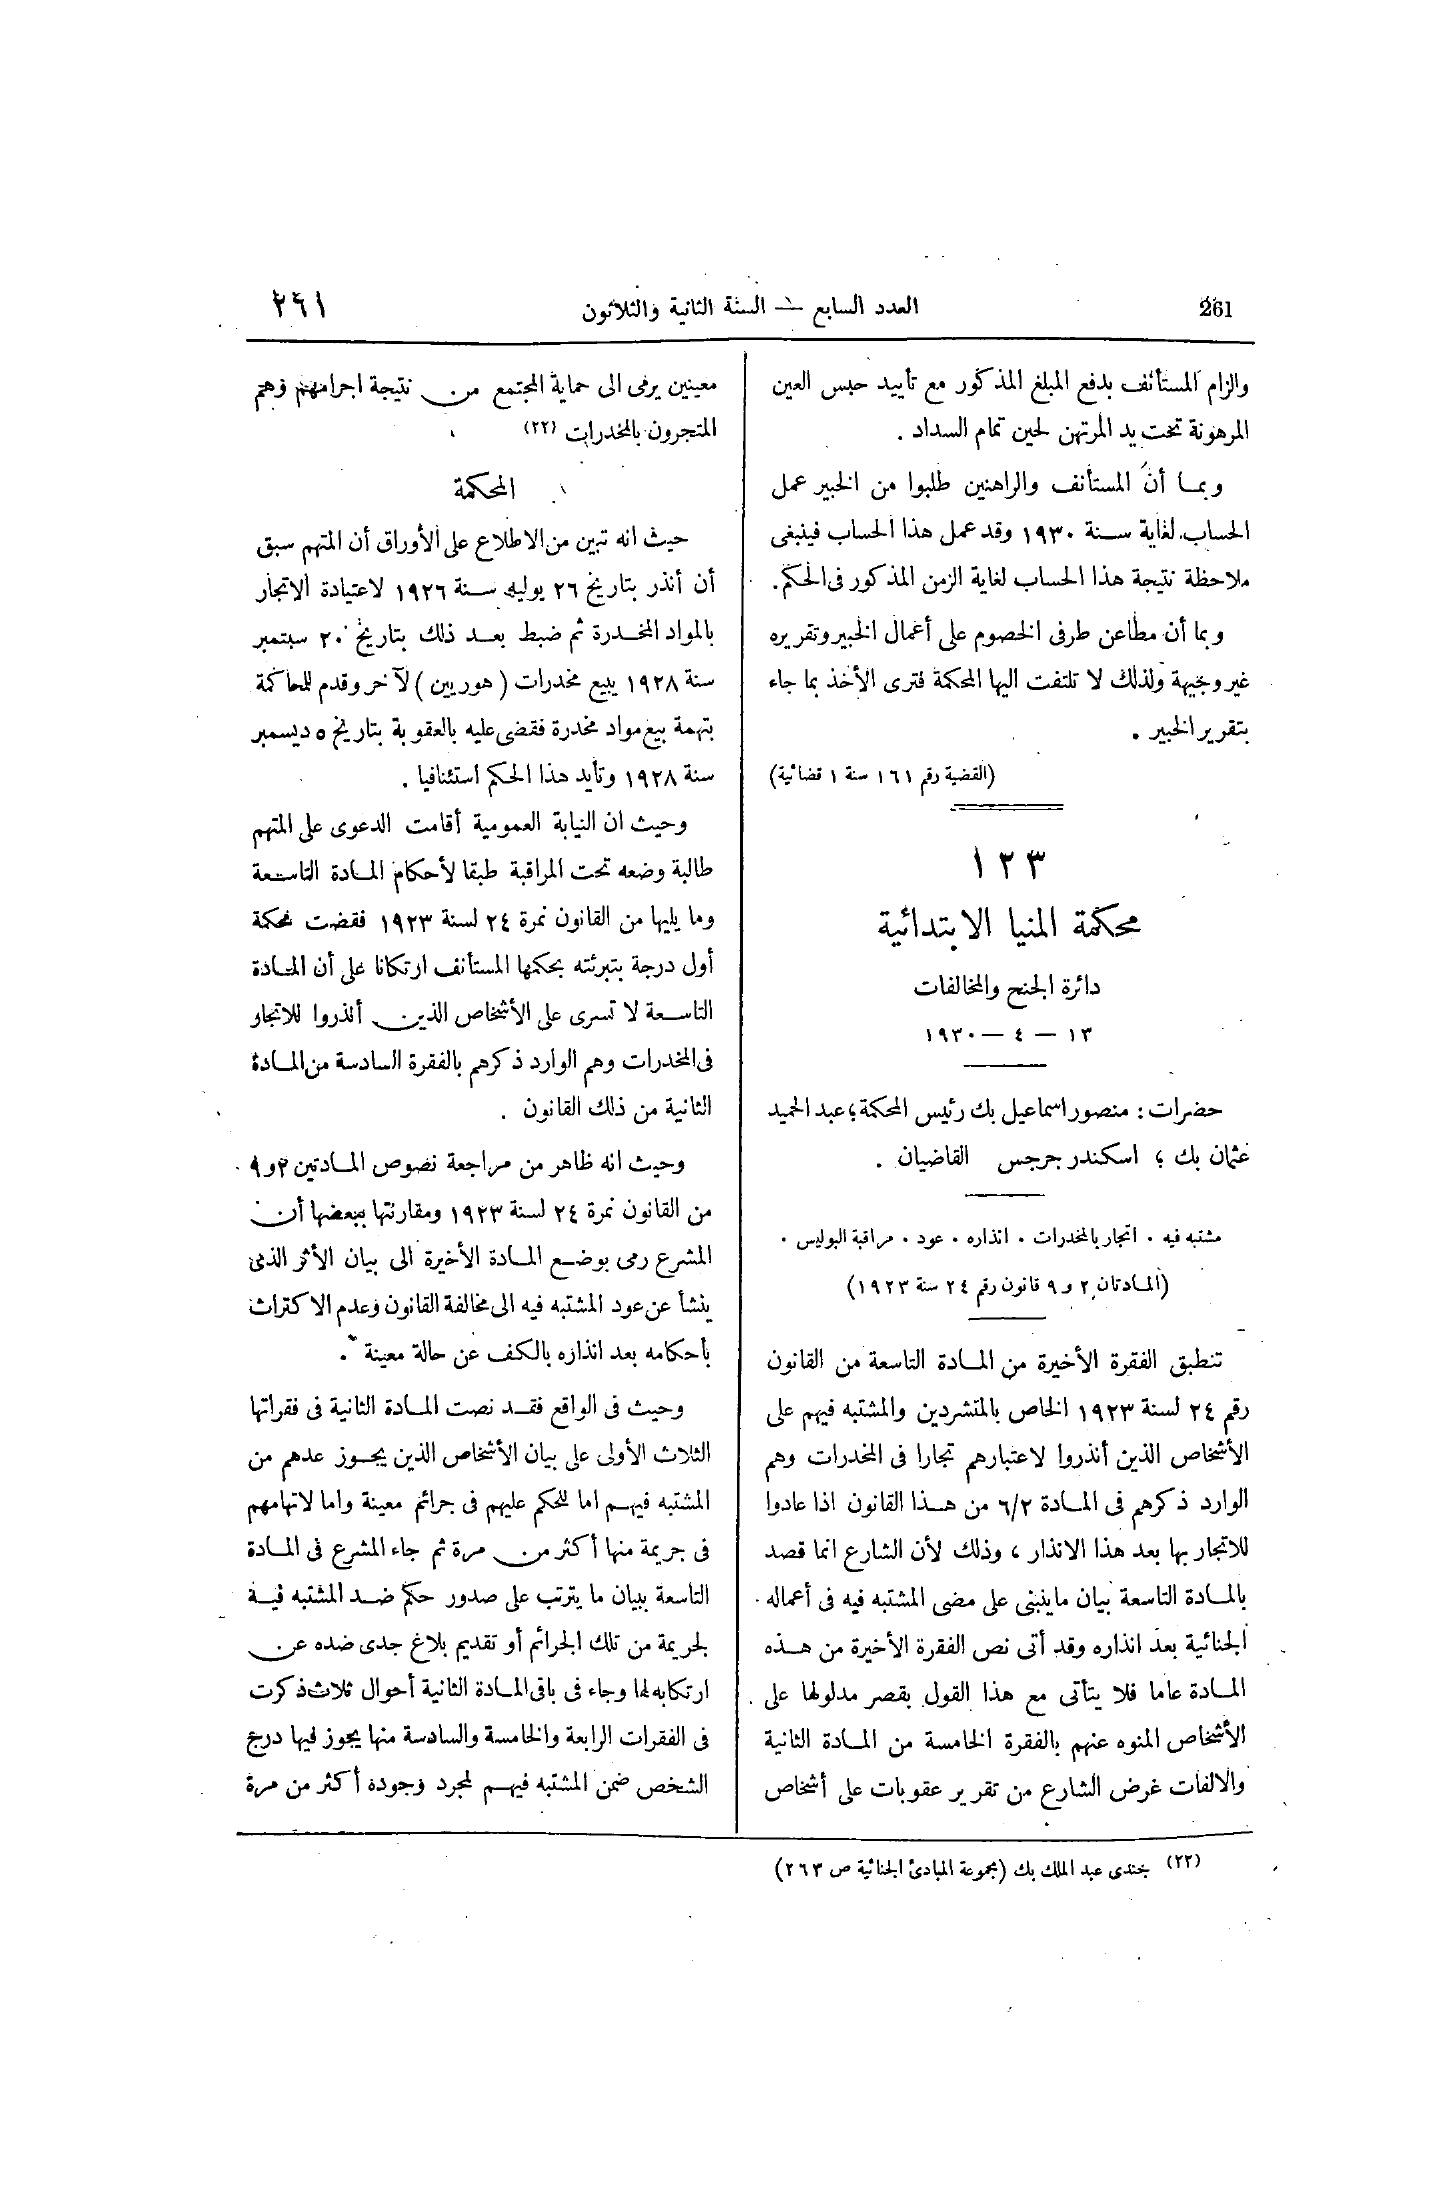 261
العدد السابع — السنة الثانية والثلاثون
٢٦١
والزام المستأنف بدفع المبلغ المذكور مع تأييد حبس العين
المرهونة تحت يد المرتهن لحين تمام السداد .
وبما أن المستأنف والراهنين طلبوا من الخبير عمل
الحساب لغاية سنة ١٩٣٠ وقد عمل هذا الحساب فينبغى
ملاحظة نتيجة هذا الحساب لغاية الزمن المذكور فى الحكم.
وبما أن مطاعن طرفى الخصوم على أعمال الخبير وتقريره
غير وجيهة ولذلك لا تلتفت اليها المحكمة فترى الأخذ بما جاء
بتقرير الخبير .
(القضية رقم ١٦١ سنة ١ قضائية)
١٢٣
محكمة المنيا الابتدائية
دائرة الجنح والمخالفات
١٣ — ٤ — ١٩٣٠
حضرات : منصور اسماعيل بك رئيس المحكمة ؛ عبد الحميد
عثمان بك ؛ اسكندر جرجس القاضيان .
مشتبه فيه . اتجار بالمخدرات . انذاره . عود . مراقبة البوليس .
(المادتان ٢ و ٩ قانون رقم ٢٤ سنة ١٩٢٣)
تنطبق الفقرة الأخيرة من المادة التاسعة من القانون
رقم ٢٤ لسنة ١٩٢٣ الخاص بالمتشردين والمشتبه فيهم على
الأشخاص الذين أنذروا لاعتبارهم تجارا فى المخدرات وهم
الوارد ذكرهم فى المادة ٦/٢ من هذا القانون اذا عادوا
للاتجار بها بعد هذا الانذار ، وذلك لأن الشارع انما قصد
بالمادة التاسعة بيان ماينبنى على مضى المشتبه فيه فى أعماله
الجنائية بعد انذاره وقد أتى نص الفقرة الأخيرة من هذه
المادة عاما فلا يتأتى مع هذا القول بقصر مدلولها على
الأشخاص المنوه عنهم بالفقرة الخامسة من المادة الثانية
والالفات غرض الشارع من تقرير عقوبات على أشخاص
معينين يرمى الى حماية المجتمع من نتيجة اجرامهم وهم
المتجرون بالمخدرات (٢٢)
المحكمة
حيث انه تبين من الاطلاع على الأوراق أن المتهم سبق
أن أنذر بتاريخ ٢٦ يوليه سنة ١٩٢٦ لاعتيادة الاتجار
بالمواد المخدرة ثم ضبط بعد ذلك بتاريخ ٢٠ سبتمبر
سنة ١٩٢٨ يبيع مخدرات (هوريين) لآخر وقدم للمحاكمة
بتهمة بيع مواد مخدرة فقضى عليه بالعقوبة بتاريخ ٥ ديسمبر
سنة ١٩٢٨ وتأيد هذا الحكم استئنافيا .
وحيث ان النيابة العمومية أقامت الدعوى على المتهم
طالبة وضعه تحت المراقبة طبقا لأحكام المادة التاسعة
وما يليها من القانون نمرة ٢٤ لسنة ١٩٢٣ فقضت محكمة
أول درجة بتبرئته بحكمها المستأنف ارتكانا على أن المادة
التاسعة لا تسرى على الأشخاص الذين أنذروا للاتجار
فى المخدرات وهم الوارد ذكرهم بالفقرة السادسة من المادة
الثانية من ذلك القانون .
وحيث انه ظاهر من مراجعة نصوص المادتين ٢ و ٩
من القانون نمرة ٢٤ لسنة ١٩٢٣ ومقارنتها ببعضها أن
المشرع رمى بوضع المادة الأخيرة الى بيان الأثر الذى
ينشأ عن عود المشتبه فيه الى مخالفة القانون وعدم الاكتراث
بأحكامه بعد انذاره بالكف عن حالة معينة .
وحيث فى الواقع فقد نصت المادة الثانية فى فقراتها
الثلاث الأولى على بيان الأشخاص الذين يجوز عدهم من
المشتبه فيهم اما للحكم عليهم فى جرائم معينة واما لاتهامهم
فى جريمة منها أكثر من مرة ثم جاء المشرع فى المادة
التاسعة ببيان ما يترتب على صدور حكم ضد المشتبه فيه
لجريمة من تلك الجرائم أو تقديم بلاغ جدى ضده عن
ارتكابه لها وجاء فى باقى المادة الثانية أحوال ثلاث ذكرت
فى الفقرات الرابعة والخامسة والسادسة منها يجوز فيها درج
الشخص ضمن المشتبه فيهم لمجرد وجوده أكثر من مرة
(٢٢) جندى عبد الملك بك (مجموعة المبادئ الجنائية ص ٢٦٣)